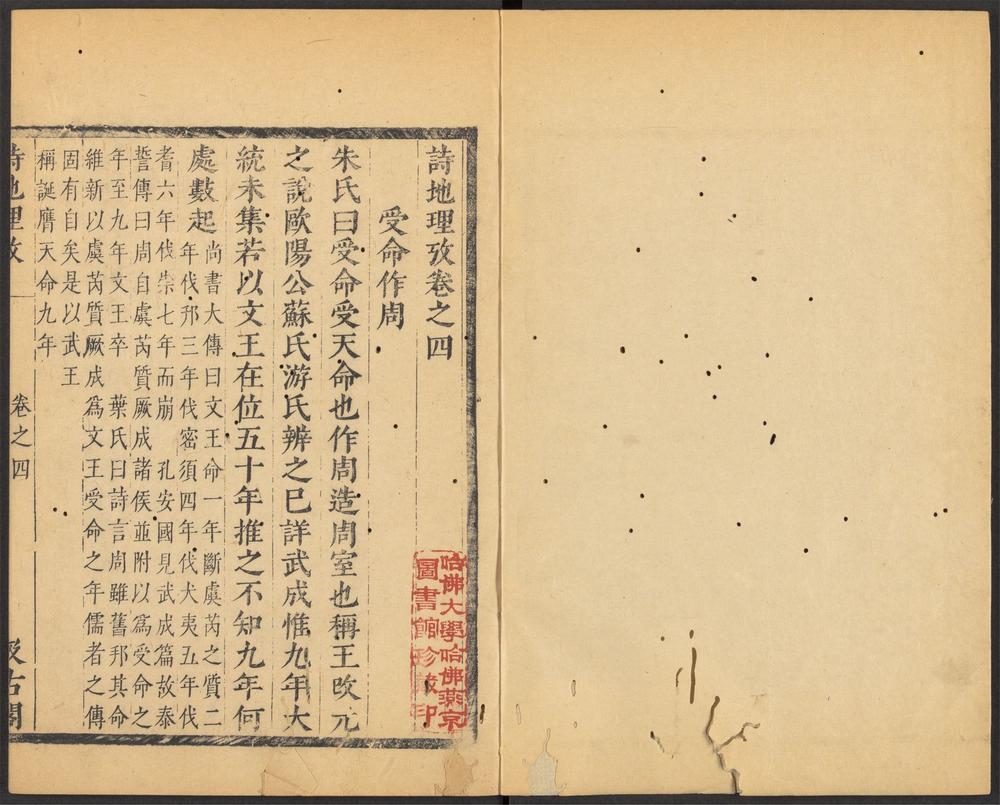 詩地理攷卷之四
受命作周
朱氏曰受命受天命也作周造周室也稱王改元
之說歐陽公蘇氏游氏辨之已詳武成惟九年大
統未集若以文王在位五十年推之不知九年何
處數起
尚書大傳曰文王命一年斷虞芮之質二
年伐邘三年伐密須四年伐犬夷五年伐
耆六年伐崇七年而崩 孔安國見武成篇故泰
誓傳曰周自虞芮質厥成諸侯並附以爲受命之
年至九年文王卒 葉氏曰詩言周雖舊邦其命
維新以虞芮質厥成爲文王受命之年儒者之傳
固有自矣是以武王
稱誕膺天命九年
詩地理攷
卷之四
汲古閣
哈佛大學哈佛燕京
圖書館珍藏印